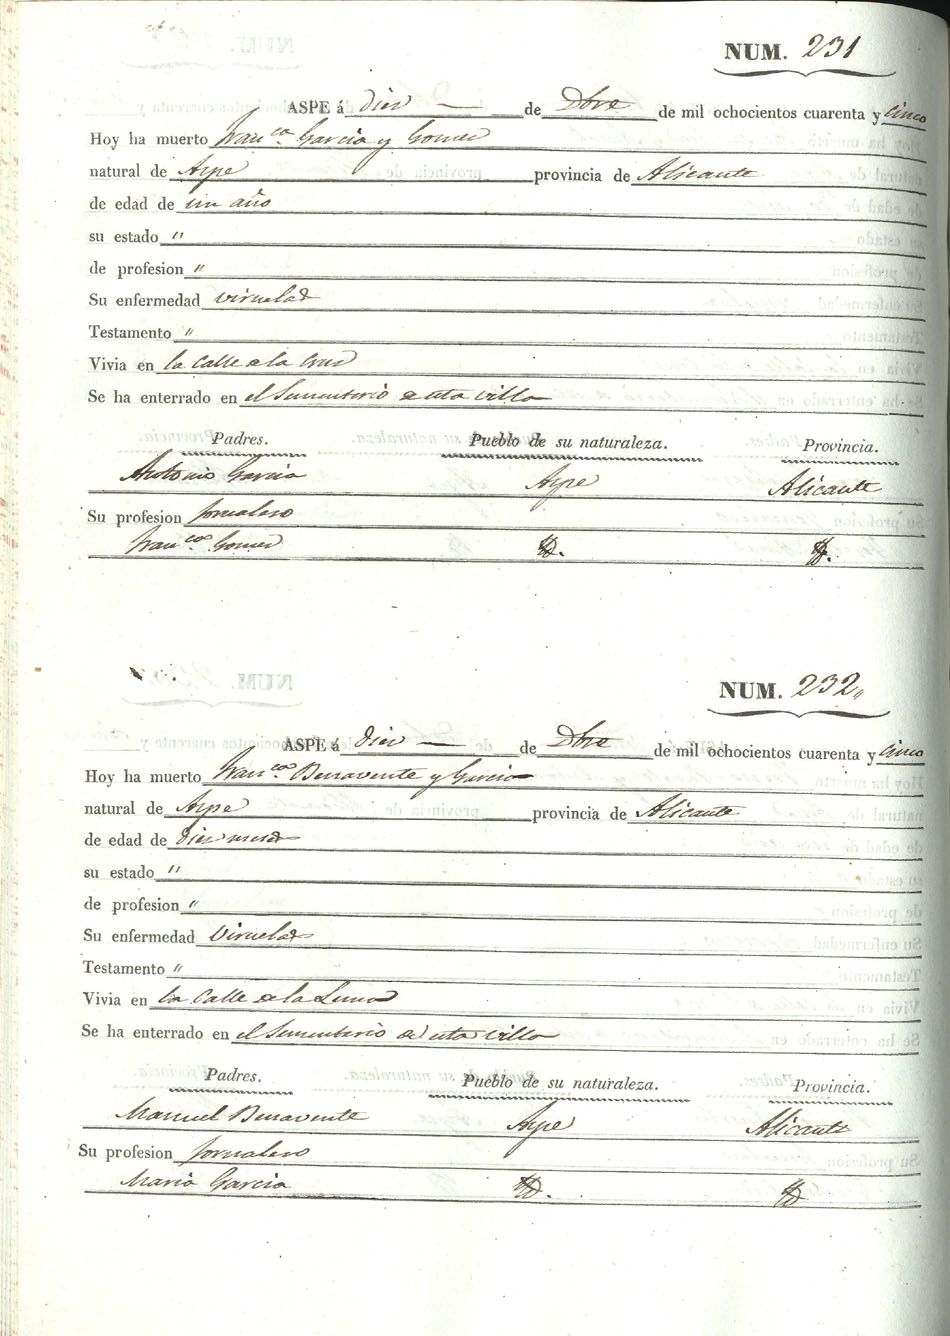 NUM. 231
ASPE á diez de Dbre de mil ochocientos cuarenta y cinco
Hoy ha muerto Franca. Garcia y Gomez
natural de Aspe provincia de Alicante
de edad de un año
su estado "
de profesion "
Su enfermedad viruelas
Testamento "
Vivia en la Calle de la Cruz
Se ha enterrado en el Sementerio de esta villa
Padres. Pueblo de su naturaleza. Provincia.
Antonio Garcia Aspe Alicante
Su profesion Jornalero
Franca. Gomez Yd. Yd.
NUM. 232"
ASPE á diez de Dbre de mil ochocientos cuarenta y cinco
Hoy ha muerto Franca. Benavente y Garcia
natural de Aspe provincia de Alicante
de edad de diez meses
su estado "
de profesion "
Su enfermedad Viruelas
Testamento "
Vivia en la Calle de la Luna
Se ha enterrado en el Sementerio de esta villa
Padres. Pueblo de su naturaleza. Provincia.
Manuel Benavente Aspe Alicante
Su profesion Jornalero
Maria Garcia Yd. Yd